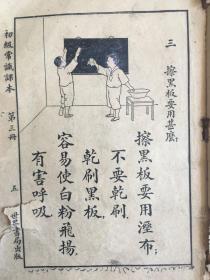 三 擦黑板要用甚麼
擦黑板要用溼布；
不要乾刷。
乾刷黑板，
容易使白粉飛揚，
有害呼吸。
初級常識課本
第三冊
五
世界書局出版